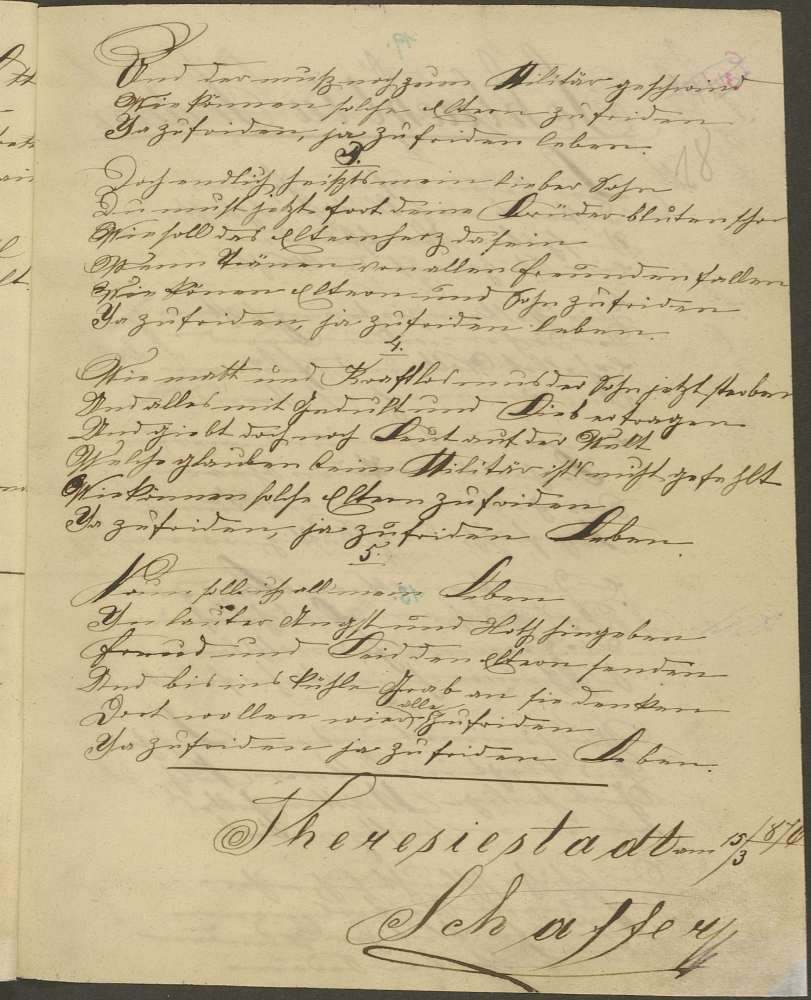 Und der muß noch zum Militär geschwind
Wie können solche Eltern zufriden
Ja zufriden, ja zufriden leben.
3.
Doch endlich heißts mein lieber Sohn
Du must jetzt fort deine Brüder bluten schon
Wie soll das Elternherz da sein
Wenn Tränen von allen freunden fallen
Wie könen Eltern und Sohn zufriden
Ja zufriden, ja zufriden leben.
4.
Wie matt und Kraftlos mus der Sohn jetzt sterben
Und alles mit Gedult und Lieb ertragen
Und giebt doch noch Leut auf der Welt
Welche glauben beim Militär ist's nicht gefehlt
Wie können solche Eltern zufriden
Ja zufriden, ja zufriden Leben.
5.
Nun soll ich all mein Leben
In lauter Angst und Noth hingeben
freud und Leid den Eltern senden
Und bis ins kühle Grab an sie denken
Dort wollen wir alle zufriden
Ja zufriden ja zufriden Leben.
Theresiestadt am 15/3 1876
Schaffer
18